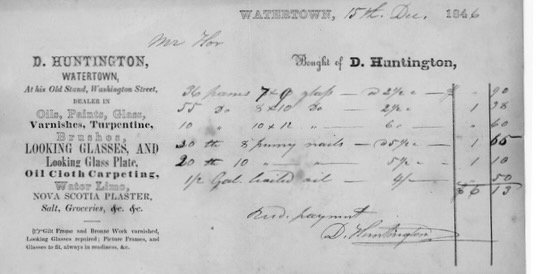 WATERTOWN, 15th Dec. 1846
Mr
D. HUNTINGTON,
WATERTOWN,
At his Old Stand, Washington Street,
DEALER IN
Oils, Paints, Glass,
Varnishes, Turpentine,
Brushes,
LOOKING GLASSES, AND
Looking Glass Plate,
Oil Cloth Carpeting,
Water Lime,
NOVA SCOTIA PLASTER,
Salt, Groceries, &c. &c.
Gilt Frame and Bronze Work varnished,
Looking Glasses repaired; Picture Frames, and
Glasses to fit, always in readiness, &c.
Bought of D. Huntington,
36 7 x 9 glass - 2½ c - $ " 90
55 Do 8 x 10 Do - 2½ c - 1 38
10 " 10 x 12 " - 6 c - " 60
8 penny nails - 5½ c - 1 65
20 10 " " - 5½ c - 1 10
1/2 Gal boiled oil - 4/ - " 50
$6 13
Recd. payment
D. Huntington